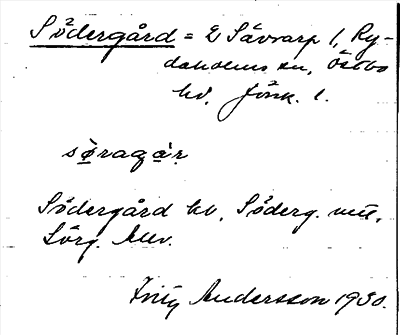 Södergård = E Sävrarp 1, Ry-
daholms sn, Östbo
hd, Jönk. l.
sø̀ragạ̀r
Södergård hd, Söderg.
Sörg.
Fritz Andersson 1930.